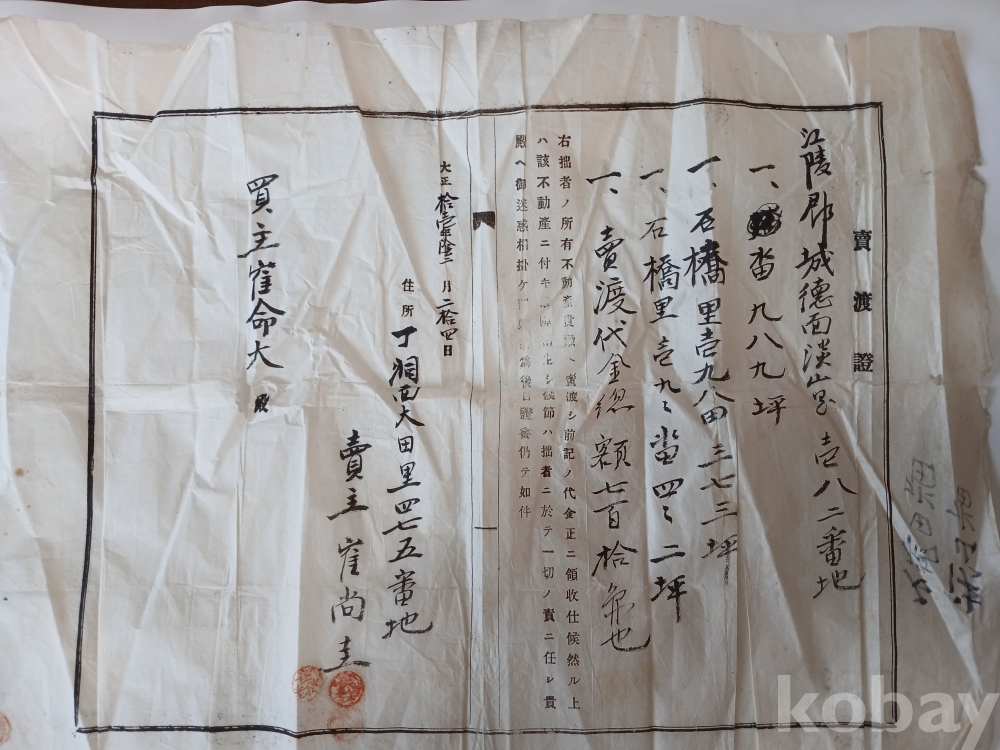 賣渡證
江陵郡城德面淡山里壱八二番地
一、畓九八九坪
一、石橋里壱九八田三七三坪
一、石橋里壱九々畓四々二坪
一、賣渡代金総額七百拾
右拙者ノ所有不動産 賣渡シ前記ノ代金正ニ領收仕候然ル上
ハ該不動産ニ付キ 節ハ拙者ニ於テ一切ノ責ニ任シ貴
殿ヘ御迷惑相掛ケ 爲後日證書仍テ如件
大正拾壹年 月二拾四日
住所 丁洞面大田里四七五番地
賣主 崔尚圭
買主崔命大 殿
kobay